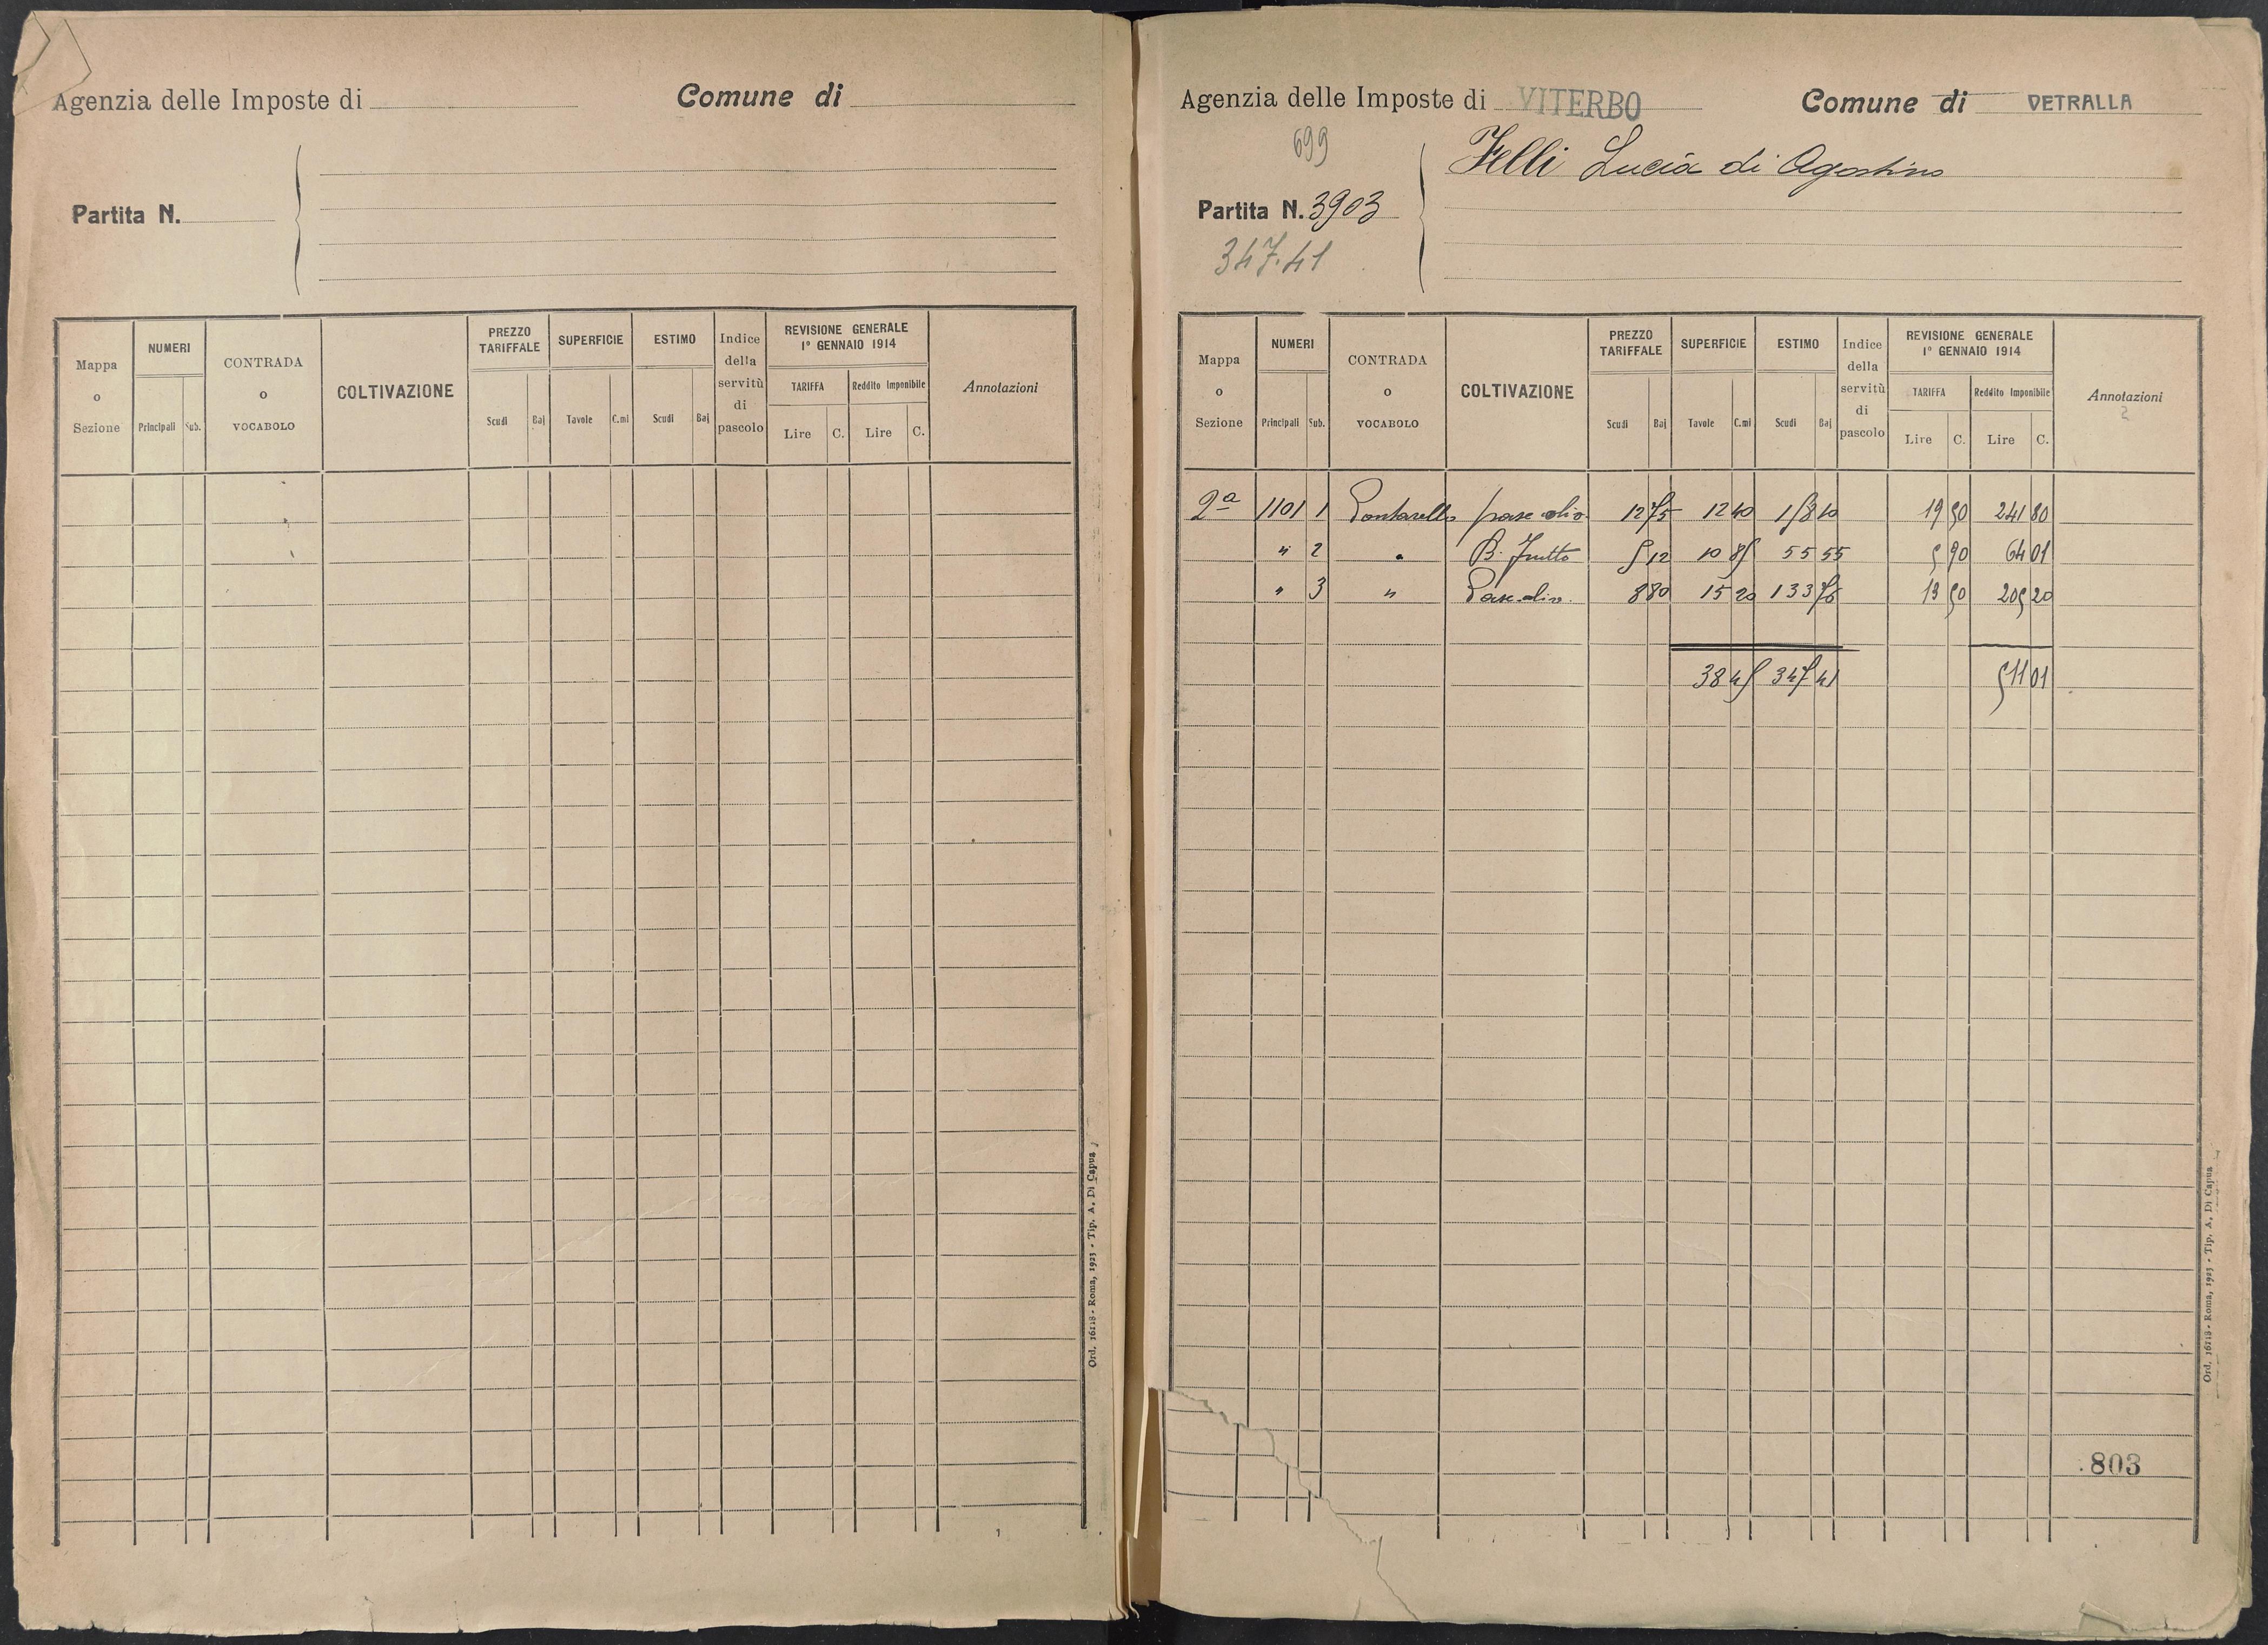 Agenzia delle Imposte di Comune di
Partita N.
Mappa o Sezione NUMERI Principali Sub. CONTRADA o VOCABOLO COLTIVAZIONE PREZZO TARIFFALE Scudi Baj SUPERFICIE Tavole C.mi ESTIMO Scudi Baj Indice della servitù di pascolo REVISIONE GENERALE 1° GENNAIO 1914 TARIFFA Lire C. Reddito Imponibile Lire C. Annotazioni
Ord. 16118 - Roma, 1923 - Tip. A. Di Capua
Agenzia delle Imposte di VITERBO Comune di VETRALLA
699
Felli Lucia di Agostino
Partita N. 3903
347.41
Mappa o Sezione NUMERI Principali Sub. CONTRADA o VOCABOLO COLTIVAZIONE PREZZO TARIFFALE Scudi Baj SUPERFICIE Tavole C.mi ESTIMO Scudi Baj Indice della servitù di pascolo REVISIONE GENERALE 1° GENNAIO 1914 TARIFFA Lire C. Reddito Imponibile Lire C. Annotazioni
2ª 1101 1 Pontarello pasc. oliv. 12 75 12 40 158 10 19 50 241 80
" 2 " B. frutto 5 12 10 85 55 55 5 90 64 01
" 3 " Pasc. oliv. 8 80 15 20 133 76 13 50 205 20
38 45 347 41 511 01
803
Ord. 16118 - Roma, 1923 - Tip. A. Di Capua